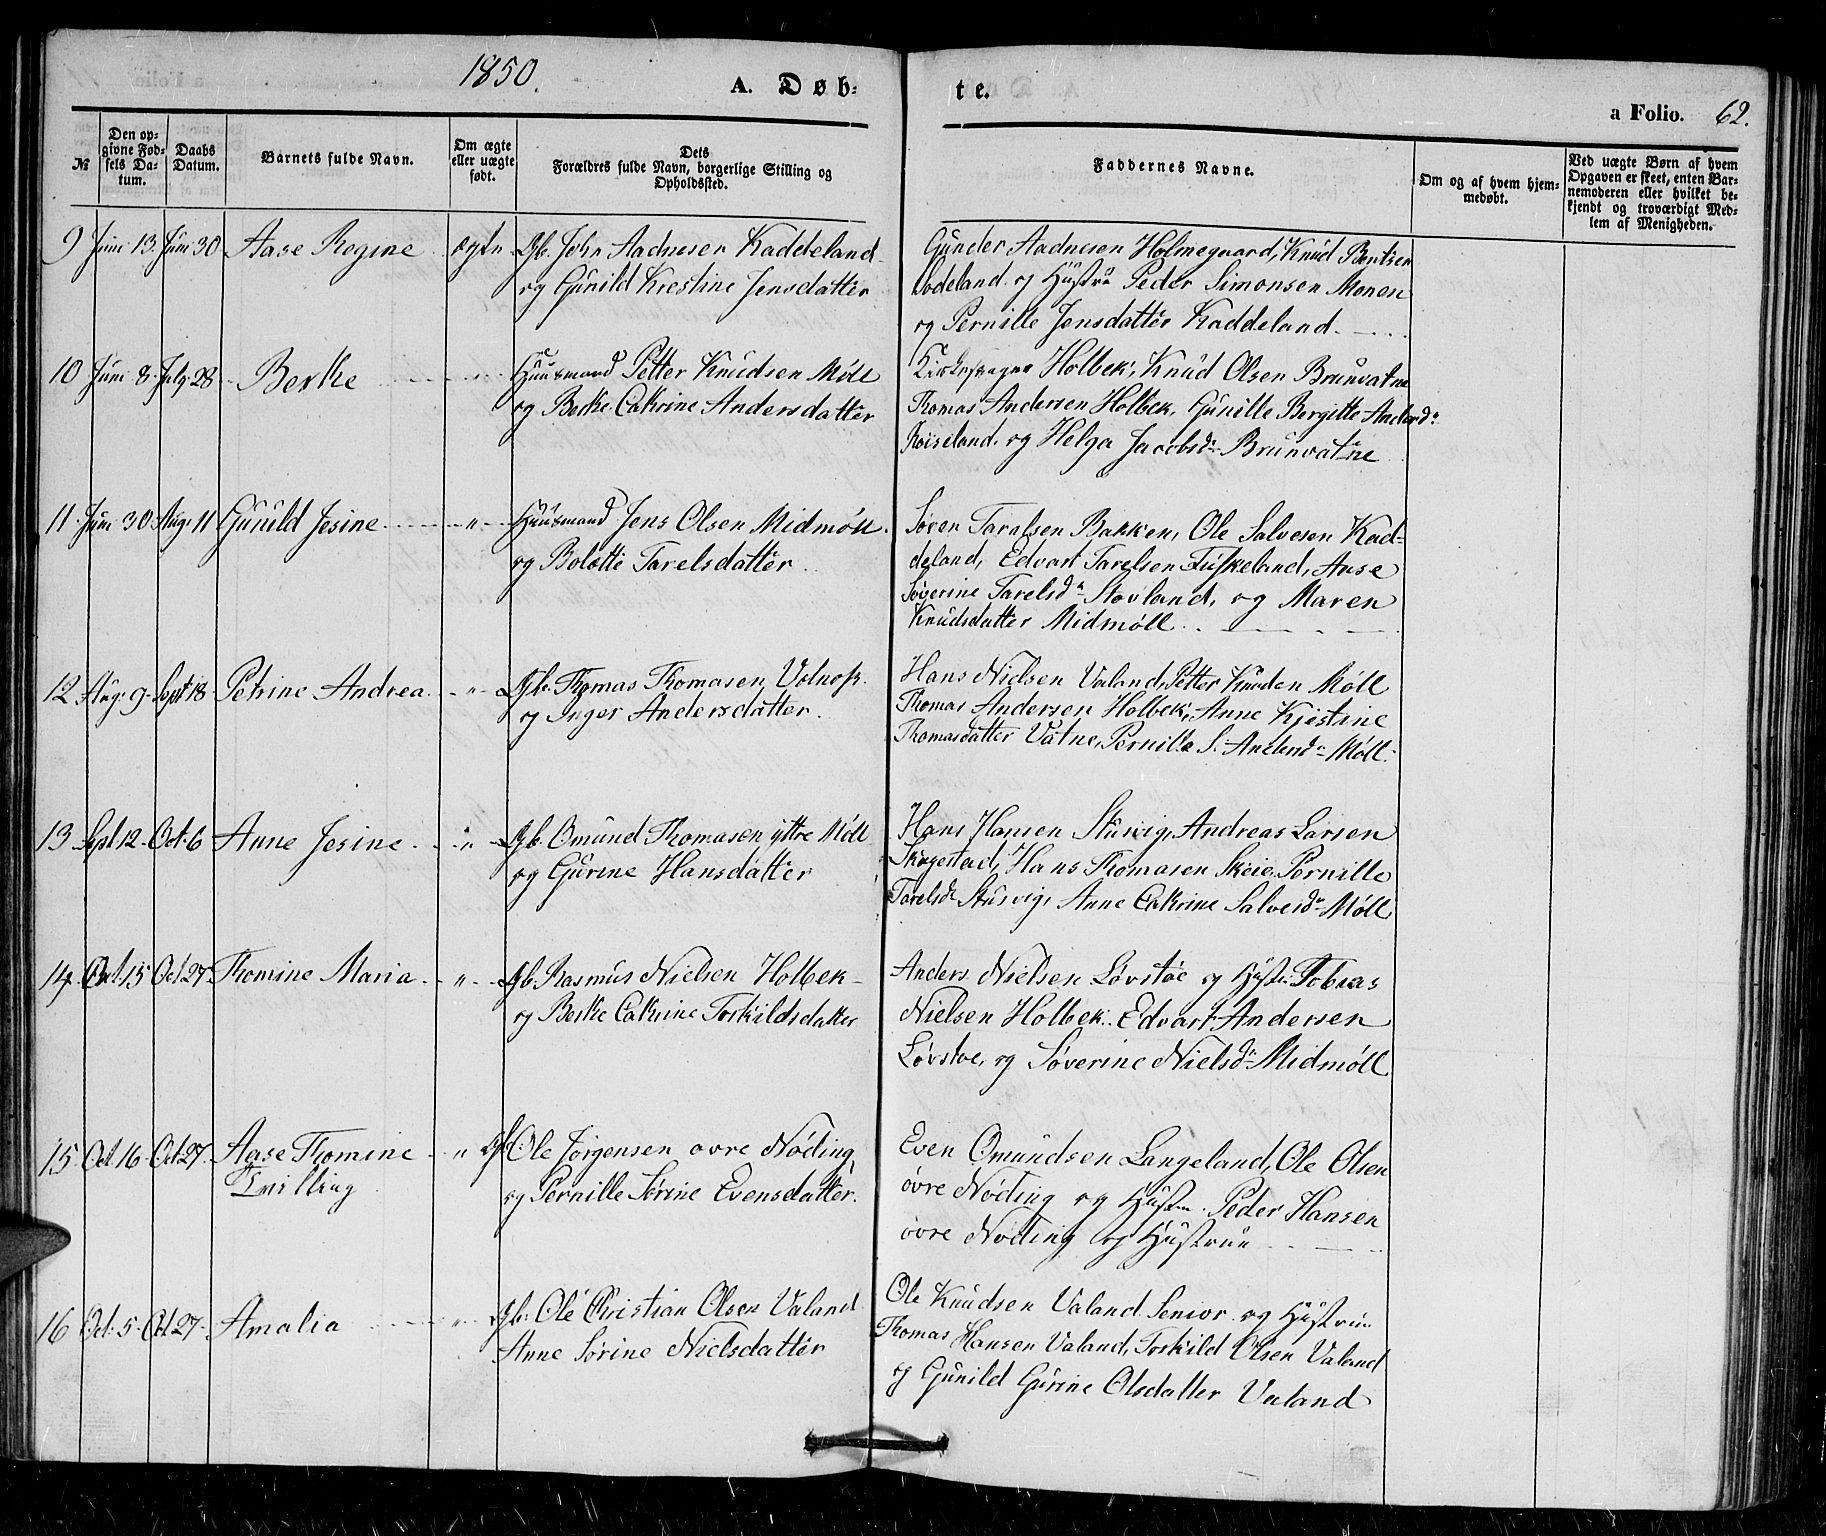 1850.
A. Døb-
te.
a Folio. 62.
№
Den op-
givne Fød-
sels Da-
tum.
Daabs
Datum.
Barnets fulde Navn.
Om ægte
eller uægte
født.
Dets
Forældres fulde Navn, borgerlige Stilling og
Opholdssted.
Faddernes Navne.
Om og af hvem hjem-
medøbt.
Ved uægte Børn af hvem
Opgaven er skeet, enten Bar-
nemoderen eller hvilket be-
kjendt og troværdigt Med-
lem af Menigheden.
9 Juni 13. Juni 30 Aase Regine ægte Gb. John Aadnesen Kaddeland
og Gunild Krestine Jensdatter
Gunder Aadnesen Holmegaard, Knud Bentsen
Sodeland og Hustru Peder Simonsen Monen
og Pernille Jensdatter Kaddeland.
10 Juni 8. July 28 Berthe Huusmand Petter Knudsen Møll
og Berthe Cathrine Andersdatter
Holbek, Knud Olsen Brunvatne
Thomas Andersen Holbek, Gunille Bergitte Andersd.
Røiseland og Helga Jacobsd. Brunvatne
11. Juni 30. Aug. 11 Gunild Jesine " Huusmand Jens Olsen Midmøll.
og Bolette Tarelsdatter
Søren Taralsen Bakken, Ole Salvesen Kad-
deland, Edvart Tarelsen Fuskeland, Aase
Søverine Tarelsd. Stovland, og Maren
Knudsdatter Midmøll.
12 Aug. 9. Sept 18. Petrine Andrea " Gb. Thomas Thomasen Volness.
og Inger Andersdatter.
Hans Nielsen Valand, Petter Knudsen Møll
Thomas Andersen Holbek, Anne Kjestine
Thomasdatter Vatne, Pernille S. Andersd. Møll.
13 Sept 12. Oct. 6 Anne Jesine " Gb. Omund Thomasen yttre Møll
og Gurine Hansdatter
Hans Hansen Stusvig, Andreas Larsen
Skogestad, Hans Thomasen Skeie, Pernille
Tarelsd. Stusvig, Anne Cathrine Salvesd. Møll
14 Oct. 15 Oct. 27. Thomine Maria " Gb. Rasmus Nielsen Holbek
og Berthe Cathrine Torkildsdatter
Anders Nielsen Løvstøe og Hustr. Tobias
Nielsen Holbek. Edvart Andersen
Løvstoe, og Søverine Nielsd. Midmøll
15 Oct. 16 Oct. 27. Aase Thomine " Gb. Ole Jørgensen øvre Nøding
Tvilling
og Pernille Serine Evensdatter.
Even Omundsen Langeland, Ole Olsen
øvre Nøding og Hustru. Peder Hansen
øvre Nøding og Hustrue
16 Oct. 5. Oct. 27. Amalia " Gb. Ole Christian Olsen Valand
Anne Sørine Nielsdatter
Ole Knudsen Valand Senior og Hustrue
Thomas Hansen Valand, Torkild Olsen Valand
og Gunild Gurine Olsdatter Valand